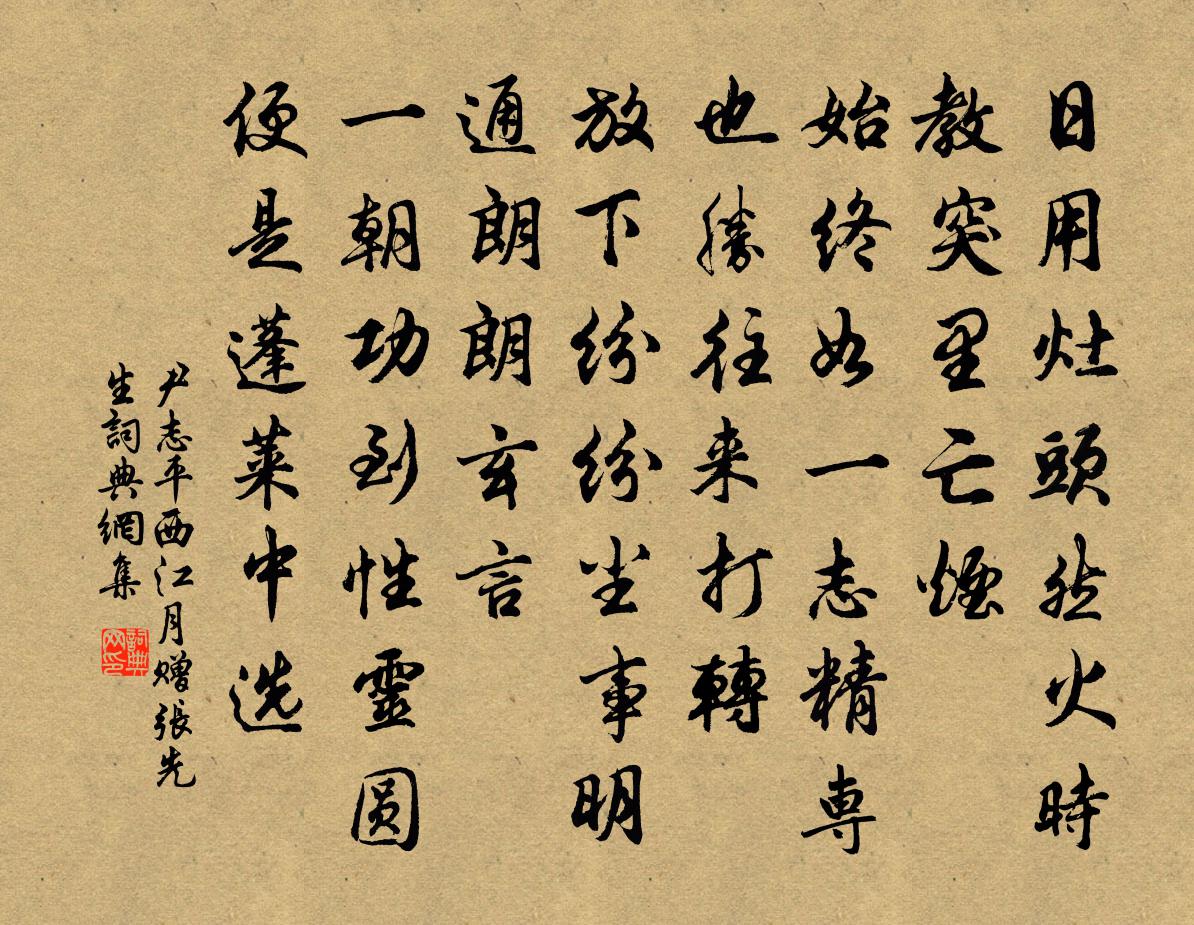 日用灶頭然火時
教突里亡煙
始終如一志精専
也勝往来打轉
放下纷纷尘事明
通朗朗玄言
一朝功到性靈圆
便是蓬莱中选
尹志平西江月赠張先
生詞典網集
詞典网印